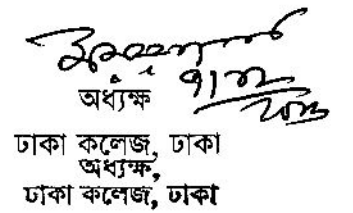 অধ্যক্ষ
ঢাকা কলেজ, ঢাকা
অধ্যক্ষ,
ঢাকা কলেজ, ঢাকা